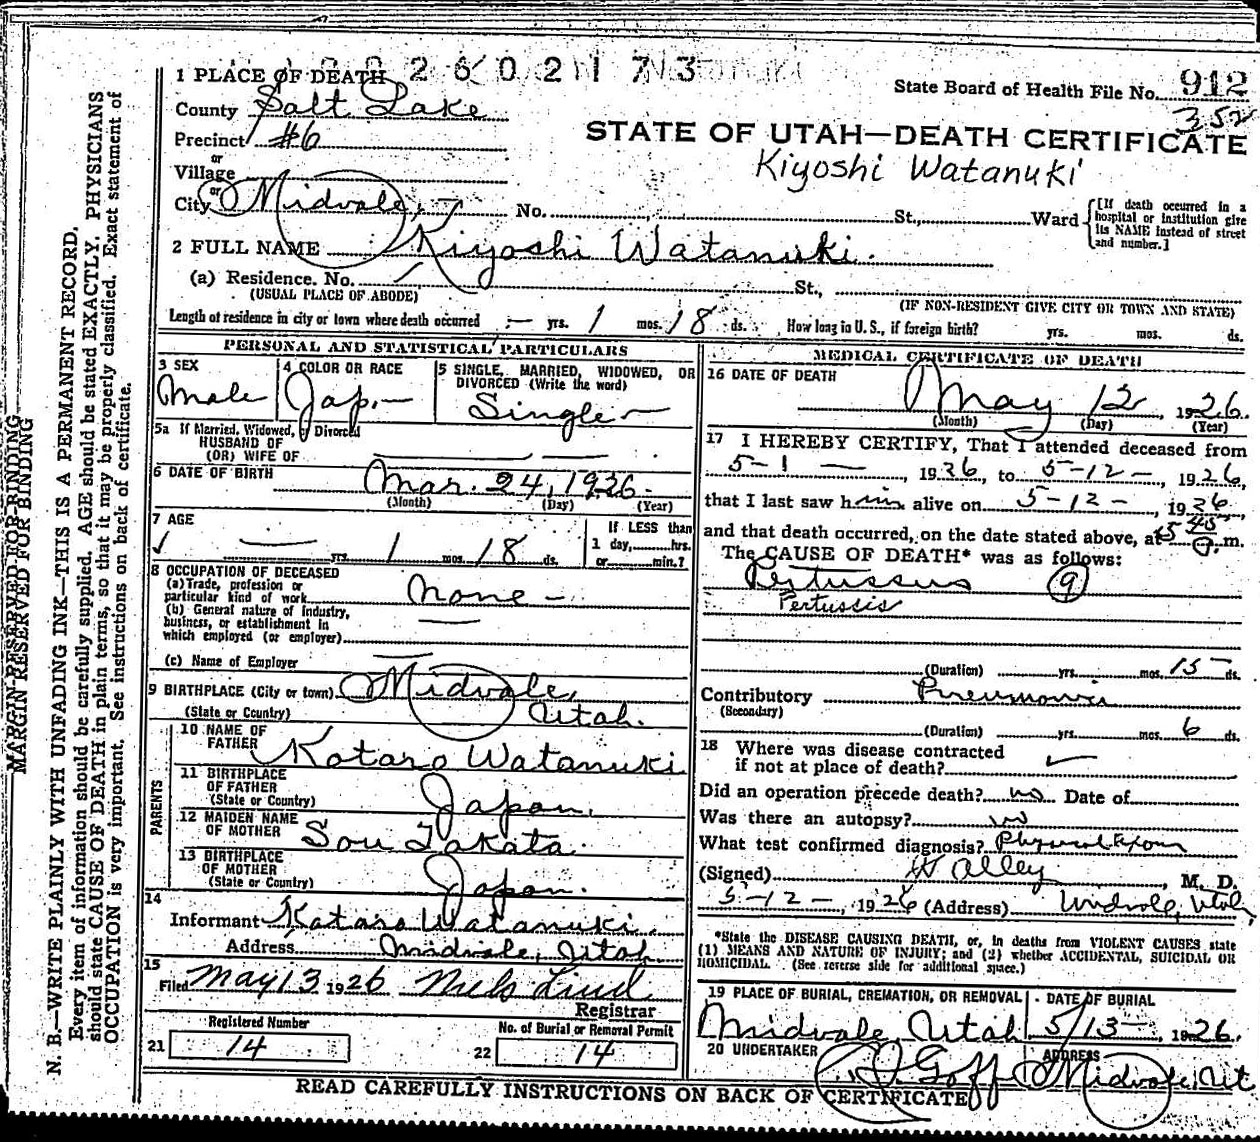 1 PLACE OF DEATH
2602173
State Board of Health File No. 912
County Salt Lake
352
Precinct #6
STATE OF UTAH—DEATH CERTIFICATE
or
Village
Kiyoshi Watanuki
or
City Midvale, No. St., Ward
[If death occurred in a hospital or institution give its NAME instead of street and number.]
2 FULL NAME Kiyoshi Watanuki.
(a) Residence. No. St.,
(USUAL PLACE OF ABODE) (IF NON-RESIDENT GIVE CITY OR TOWN AND STATE)
Length of residence in city or town where death occurred — yrs. 1 mos. 18 ds. How long in U. S., if foreign birth? yrs. mos. ds.
PERSONAL AND STATISTICAL PARTICULARS
3 SEX
Male
4 COLOR OR RACE
Jap. —
5 SINGLE, MARRIED, WIDOWED, OR DIVORCED (Write the word)
Single —
5a If Married, Widowed, or Divorced
HUSBAND OF
(OR) WIFE OF
6 DATE OF BIRTH Mar. 24, 1926.
(Month) (Day) (Year)
7 AGE
— yrs. 1 mos. 18 ds.
If LESS than
1 day, hrs.
or min.?
8 OCCUPATION OF DECEASED
(a) Trade, profession or
particular kind of work None —
(b) General nature of industry,
business, or establishment in
which employed (or employer)
(c) Name of Employer
9 BIRTHPLACE (City or town) Midvale,
(State or Country) Utah.
PARENTS
10 NAME OF
FATHER Kotaro Watanuki
11 BIRTHPLACE
OF FATHER
(State or Country) Japan.
12 MAIDEN NAME
OF MOTHER Sou Takata.
13 BIRTHPLACE
OF MOTHER
(State or Country) Japan.
14
Informant Kataro Watanuki.
Address Midvale, Utah
15
Filed May 13 1926 Nels Lind
Registrar
Registered Number
21 14
No. of Burial or Removal Permit
22 14
MEDICAL CERTIFICATE OF DEATH
16 DATE OF DEATH
May 12, 1926.
(Month) (Day) (Year)
17 I HEREBY CERTIFY, That I attended deceased from
5-1 — 1926, to 5-12 —, 1926,
that I last saw him alive on 5-12 —, 1926,
and that death occurred, on the date stated above, at 5 45 m.
The CAUSE OF DEATH* was as follows:
Pertussus 9
Pertussis
(Duration) yrs. mos. 15 ds.
Contributory Pneumonia
(Secondary)
(Duration) yrs. mos. 6 ds.
18 Where was disease contracted
if not at place of death?
Did an operation precede death? no Date of
Was there an autopsy? no
What test confirmed diagnosis? Physical Exam
(Signed) W Alley, M. D.
5-12 —, 1926 (Address) Midvale, Utah
*State the DISEASE CAUSING DEATH, or, in deaths from VIOLENT CAUSES state
(1) MEANS AND NATURE OF INJURY; and (2) whether ACCIDENTAL, SUICIDAL OR
HOMICIDAL. (See reverse side for additional space.)
19 PLACE OF BURIAL, CREMATION, OR REMOVAL
Midvale, Utah
DATE OF BURIAL
5/13 —, 1926.
20 UNDERTAKER
Goff
ADDRESS
Midvale, Ut
READ CAREFULLY INSTRUCTIONS ON BACK OF CERTIFICATE
MARGIN RESERVED FOR BINDING
MARGIN RESERVED FOR BINDING
N. B.—WRITE PLAINLY WITH UNFADING INK—THIS IS A PERMANENT RECORD.
Every item of information should be carefully supplied. AGE should be stated EXACTLY. PHYSICIANS
should state CAUSE OF DEATH in plain terms, so that it may be properly classified. Exact statement of
OCCUPATION is very important. See instructions on back of certificate.